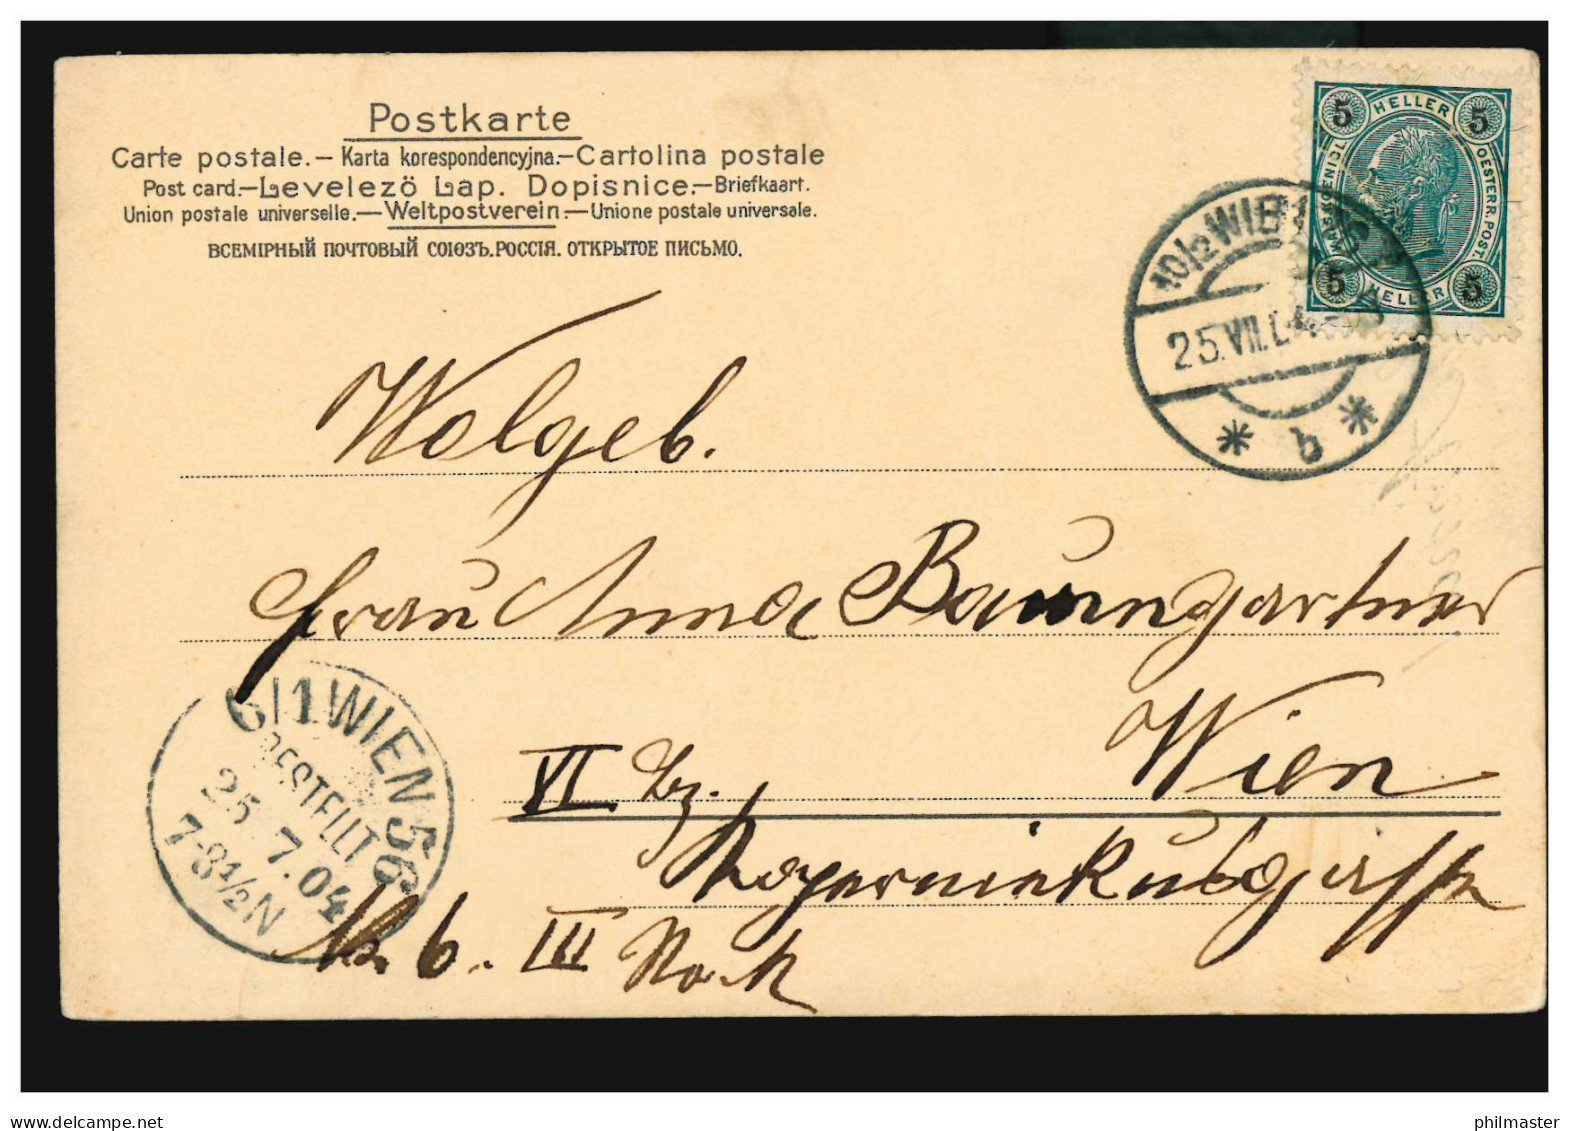 Postkarte
Carte postale.– Karta korespondencyjna.–Cartolina postale
Post card.–Levelezö Lap. Dopisnice.–Briefkaart.
Union postale universelle.–Weltpostverein.–Unione postale universale.
ВСЕМІРНЫЙ ПОЧТОВЫЙ СОЮЗЪ.РОССІЯ. ОТКРЫТОЕ ПИСЬМО.
5 HELLER 5
OESTERR. POST.
5 HELLER 5
10/2 WIEN
25.VII.04
* b *
Wolgeb.
Frau Anna Baumgartner
Wien
VI. Bz.
No 6. III Stock
6/1 WIEN 56
BESTELLT
25 7.04
7-8½N
www.delcampe.net
philmaster